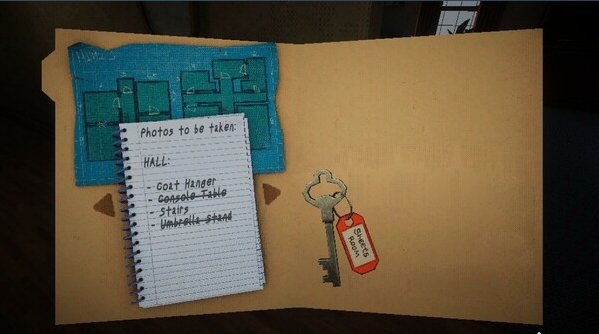 Photos to be taken:
HALL:
- Coat Hanger
- Console Table
- Stairs
- Umbrella Stand
Sheets
Room